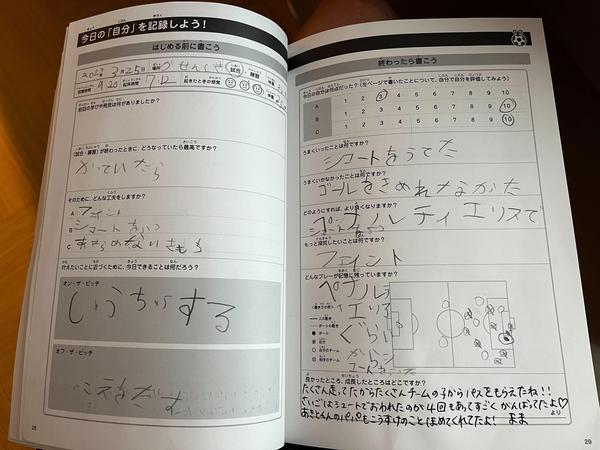 今日の「自分」を記録しよう!
はじめる前に書こう
3月25日
試合・練習
9:20
7:12
起きたときの感覚
前回の学びや発見は何がありましたか?
(試合・練習)が終わったときに、どうなっていたら最高ですか?
かっていたら
そのために、どんな工夫をしますか?
A フェイント
B シュートをうつ
C きもち
叶えたいことに近づくために、今日できることは何だろう?
オン・ザ・ピッチ
する
オフ・ザ・ピッチ
こえをだす
28
終わったら書こう
今日の自分は何点だった?(左ページで書いたことについて、自分で自分を評価してみよう)
A 1 2 3 4 5 6 7 8 9 10
B 1 2 3 4 5 6 7 8 9 10
C 1 2 3 4 5 6 7 8 9 10
うまくいったことは何ですか?
シュートをうてた
うまくいかなかったことは何ですか?
ゴールをきめれなかた
どのようにすれば、より良くなりますか?
ペナルティエリアで
もっと探究したいことは何ですか?
フェイント
どんなプレーが記憶に残っていますか?
ペナルテ
ィエリア
ぐらい
から
人の動き
ボールの動き
ボール
自分
自分のチーム
相手のチーム
良かったところ、成長したところはどこですか?
たくさん走ってたからたくさんチームの子からパスをもらえたね!!
さいごはシュートでおわれたのが4回もあってすごくがんばってたよ♡
あきとくんのパパもこうすけのことほめてくれてたよ! ままより
29